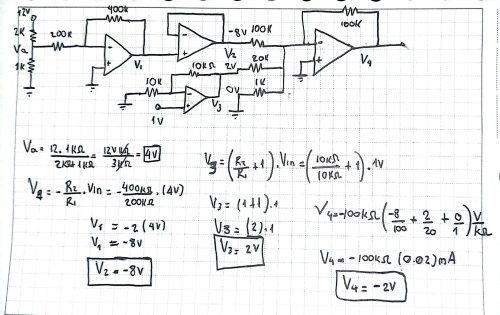 12V
2K
Va
1K
200K
400K
V₁
-8V
V₂
100K
100K
V₄
10K
10KΩ
2V
20K
V₃
1V
0V
1K
Va = 12 · 1KΩ / 2KΩ+1KΩ = 12V KΩ / 3KΩ = 4V
V₁ = - R₂/R₁ · Vin = - 400KΩ/200KΩ · (4V)
V₁ = -2 (4V)
V₁ = -8V
V₂ = -8V
V₃ = (R₂/R₁ + 1) · Vin = (10KΩ/10KΩ + 1) · 1V
V₃ = (1+1) · 1
V₃ = (2) · 1
V₃ = 2V
V₄ = -100KΩ (-8/100 + 2/20 + 0/1) V/KΩ
V₄ = -100KΩ (0.02) mA
V₄ = -2V